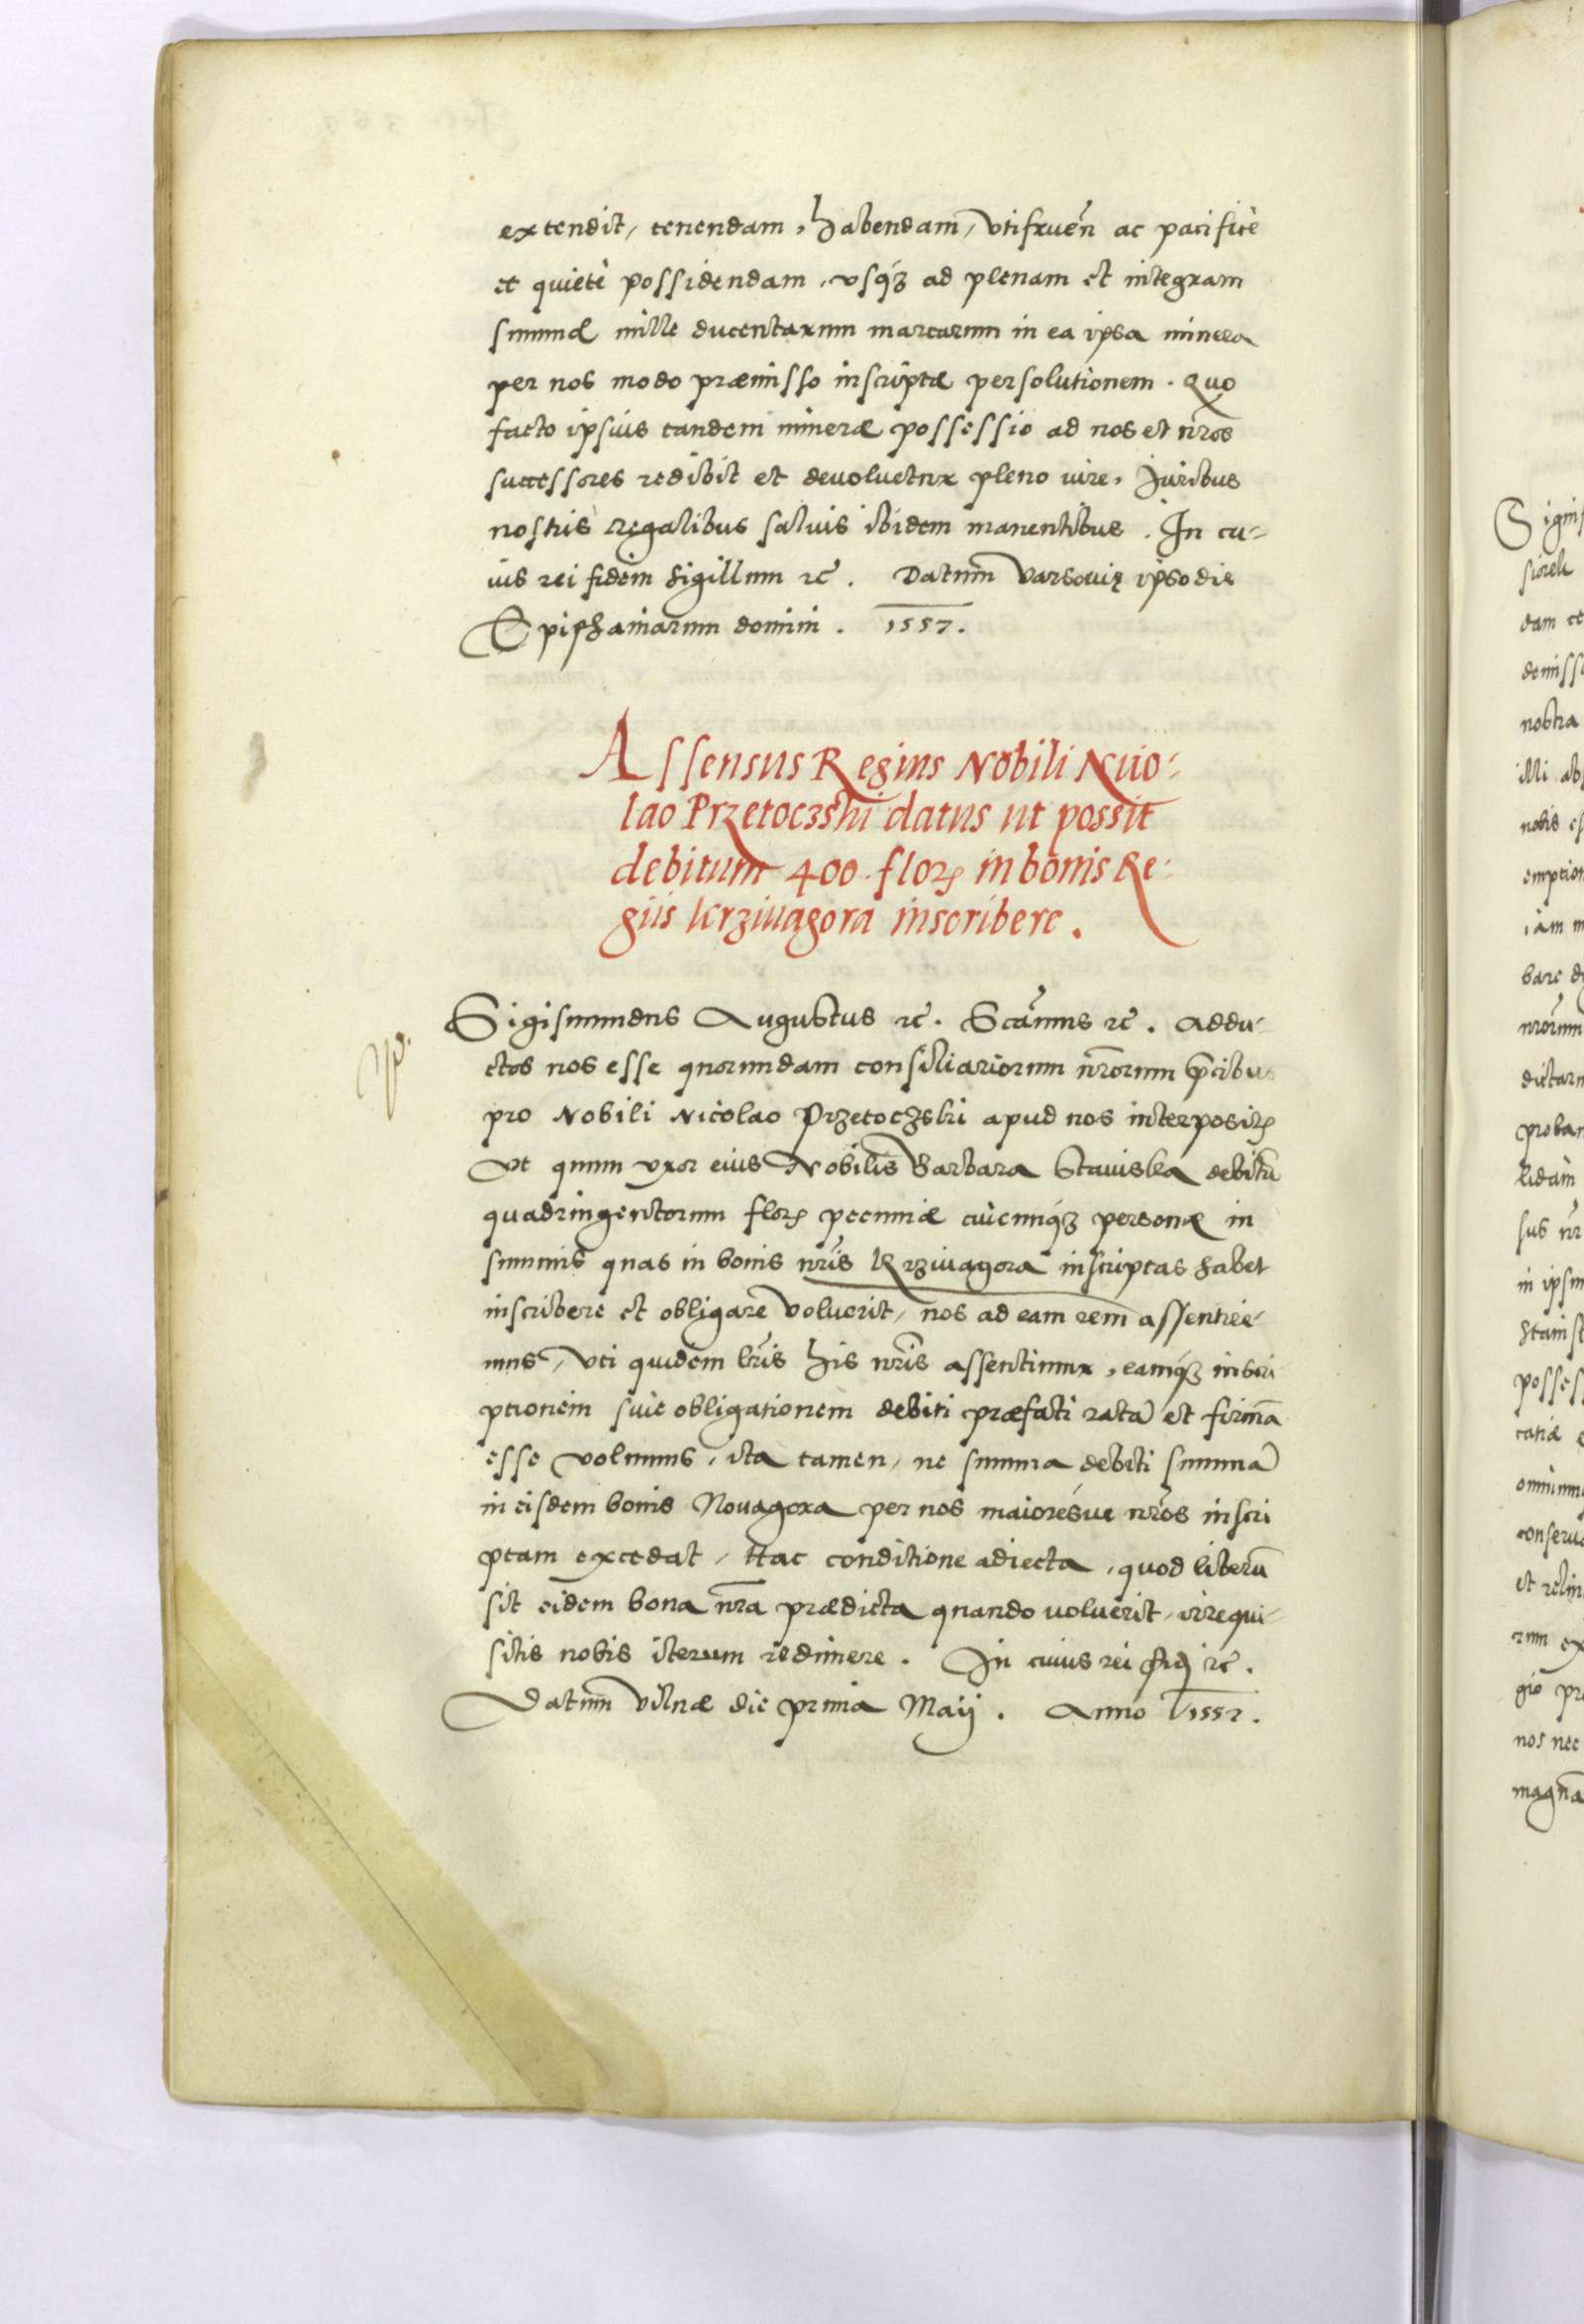 extendit, tenendam, habendam, vtifruen̄ ac pacificè
et quietè possidendam, vsq́ʒ ad plenam et integram
summæ mille ducentarum marcarum in ea ipsa minera
per nos modo præmisso inscriptæ persolutionem. Quo
facto ipsius tandem mineræ possessio ad nos et nr̄os
successores redibit et deuoluetur pleno iure, Juribus
nostris regalibus saluis ibidem manentibus. In cu-
ius rei fidem sigillum ꝛc̄. Datum Varsouię ipso die
Epiphaniarum domini. 1557.
Assensus Regius Nobili Nico-
lao Przetoczski datus ut possit
debitum 400. floꝝ in bonis Re-
giis Krziuagora inscribere.
Sigismundus Augustus ꝛc̄. Scām̄us ꝛc̄. Addu-
ctos nos esse quorundam consiliariorum nr̄orum p̄cibus
pro Nobili Nicolao Przetoczski apud nos interpositꝭ
Vt quum vxor eius Nobilis Barbara Stauiska debitū
quadringentorum floꝝ pecuniæ cuicunq́ʒ personæ in
summis quas in bonis nr̄is Krziuagora inscriptas habet
inscribere et obligare voluerit, nos ad eam rem assentire-
mus, vti quidem lr̄is his nr̄is assentimur, eamq́ʒ inscri
ptionem siue obligationem debiti præfati ratā et firmā
esse volumus, ita tamen, ne summa debiti summā
in eisdem bonis Novagora per nos maioresue nr̄os inscri
ptam excedat, Hac conditione adiecta, quod liberū
sit eidem bona nr̄a prædicta quando voluerit, irrequi-
sitis nobis iterum redimere. In cuius rei fid ꝛc̄.
Datum Vilnæ die prima Maij. Anno 1552.